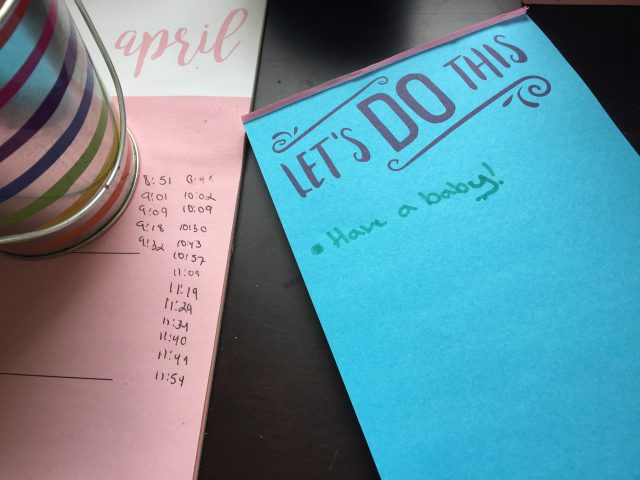 april
8:51
9:01 10:02
9:09 10:09
9:18 10:30
9:32 10:43
10:57
11:09
11:19
11:29
11:40
11:54
LET'S DO THIS
• Have a baby!